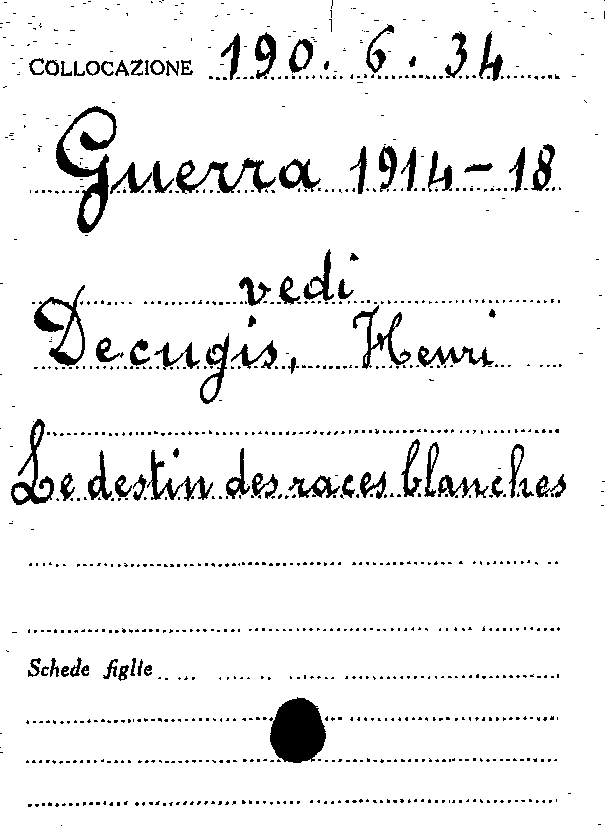 COLLOCAZIONE 190. 6. 34
Guerra 1914-18
vedi
Decugis, Henri
Le destin des races blanches
Schede figlie